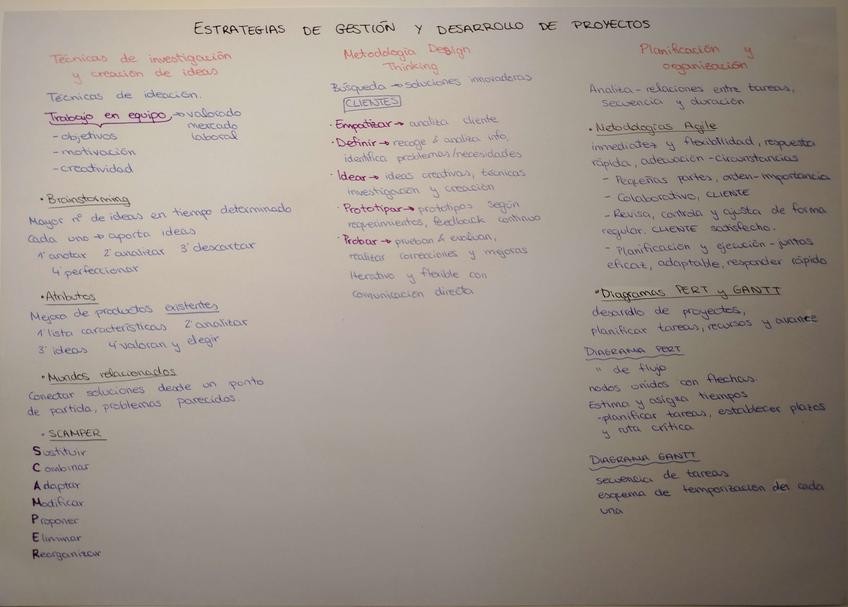 ESTRATEGIAS DE GESTIÓN Y DESARROLLO DE PROYECTOS
Técnicas de investigación
y creación de ideas
Técnicas de ideación.
Trabajo en equipo → valorado
mercado
laboral
- objetivos
- motivación
- creatividad
• Brainstorming
Mayor nº de ideas en tiempo determinado
Cada uno → aporta ideas
1º anotar 2º analizar 3º descartar
4º perfeccionar
• Atributos
Mejora de productos existentes
1º lista características 2º analizar
3º ideas 4º valoran y elegir
• Mundos relacionados
Conectar soluciones desde un punto
de partida, problemas parecidos.
• SCAMPER
Sustituir
Combinar
Adaptar
Modificar
Proponer
Eliminar
Reorganizar
Metodología Design
Thinking
Búsqueda → soluciones innovadoras
CLIENTES
• Empatizar → analiza cliente
• Definir → recoge & analiza info,
identifica problemas/necesidades
• Idear → ideas creativas, técnicas
investigación y creación
• Prototipar → prototipos según
requerimientos, feedback continuo
• Probar → prueban & evalúan,
realizar correciones y mejoras
Iterativo y flexible con
comunicación directa
Planificación y
organización
Analiza - relaciones entre tareas,
secuencia y duración
• Metodologías Agile
inmediatez y flexibilidad, respuesta
rápida, adecuación - circunstancias
- Pequeñas partes, orden - importancia
- Colaborativo, CLIENTE
- Revisa, controla y ajusta de forma
regular. CLIENTE satisfecho.
- Planificación y ejecución - juntas
eficaz, adaptable, responder rápido
• Diagramas PERT y GANTT
desarollo de proyectos,
planificar tareas, recursos y avance
DIAGRAMA PERT
" de flujo
nodos unidos con flechas.
Estima y asigna tiempos
- planificar tareas, establecer plazos
y ruta crítica
DIAGRAMA GANTT
secuencia de tareas
esquema de temporización de cada
una